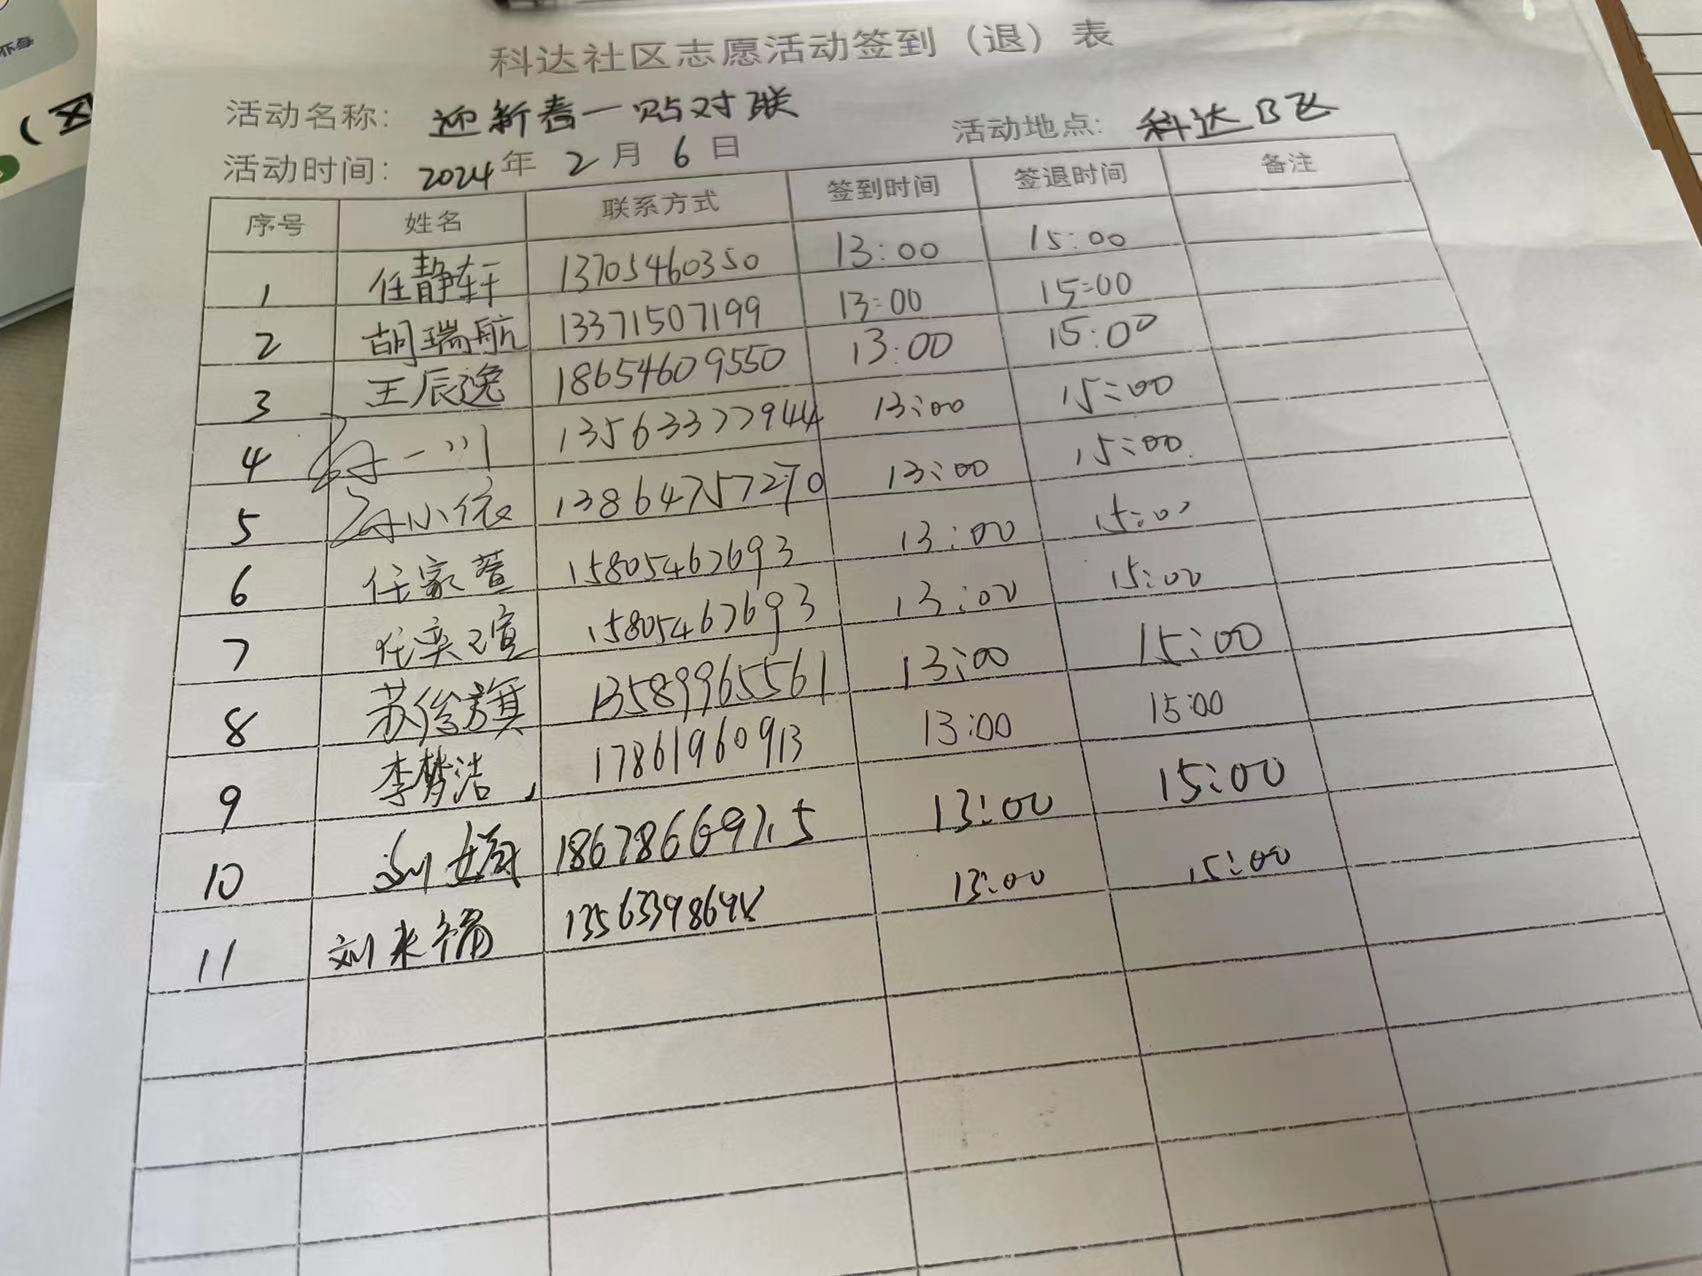 科达社区志愿活动签到（退）表
活动名称： 迎新春一贴对联 活动地点： 科达B区
活动时间： 2024年 2月 6日
序号 姓名 联系方式 签到时间 签退时间 备注
1 任静轩 13705460350 13:00 15:00
2 胡瑞航 13371507199 13:00 15:00
3 王辰逸 18654609550 13:00 15:00
4 孙一川 13563377944 13:00 15:00
5 孙小依 13864757270 13:00 15:00
6 任家萱 15805462693 13:00 15:00
7 任奕瑄 15805462693 13:00 15:00
8 苏俊旗 13589965561 13:00 15:00
9 李梦洁 17861960913 13:00 15:00
10 刘 13:00 15:00
11 刘来福 13:00 15:00